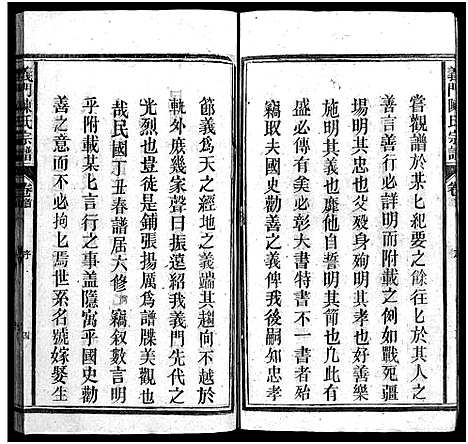 義門陳氏宗譜
卷首
嘗觀譜於某匕紀要之餘往匕於其人之
善言善行必詳明而附載之如戰死疆
場明其忠也割股廬墓明其孝也好善樂
施明其義也廉他自守明其節也每於美
盛必傳有美必彰大書特書不一書者殆
竊取夫國史勸善之義俾我後嗣知忠孝
節義爲天之經地之義踹其趨向不越於
軌外庶幾家聲日振遠紹我義門先代之
光烈也豈是鋪張揚厲爲譜牒美觀也
哉民國丁丑春譜届大修竊叙數言明
乎附載某匕言行之事盖隱寓乎國史勸
善之意不必拘匕焉世系名號嫁娶生
義門陳氏宗譜
卷首
序
四